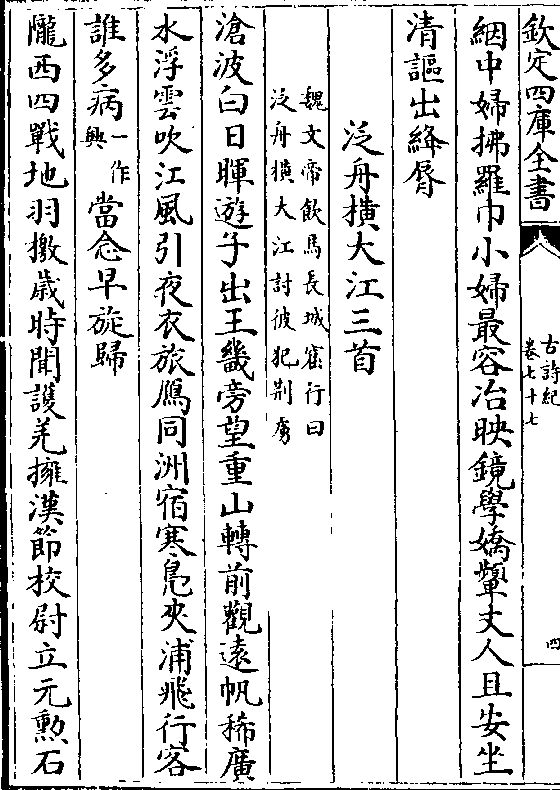 欽定四庫全書
古詩紀
卷七十七
四
絪中婦拂羅巾小婦最容冶映鏡學嬌顰丈人且安坐
清謳出絳脣
泛舟橫大江三首
魏文帝飲馬長城窟行曰
泛舟橫大江討彼犯荆虜
滄波白日暉遊子出王畿旁望重山轉前觀遠帆稀廣
水浮雲吹江風引夜衣旅鴈同洲宿寒鳬夾浦飛行客
誰多病一作興當念早旋歸
隴西四戰地羽檄歳時聞護羌擁漢節校尉立元勲石